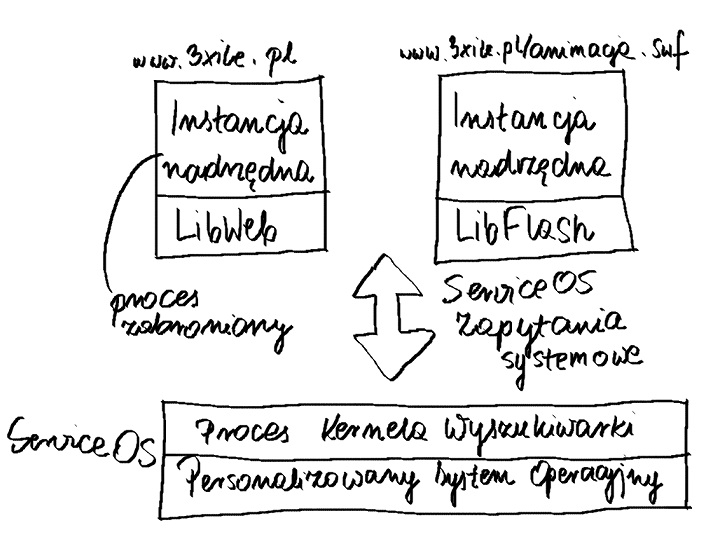 www.3xile.pl
www.3xile.pl/animacja.swf
Instancja
nadrzędna
LibWeb
Instancja
nadrzędna
LibFlash
proces
zabroniony
ServiceOS
zapytania
systemowe
ServiceOS
Proces Kernela Wyszukiwarki
Personalizowany System Operacyjny